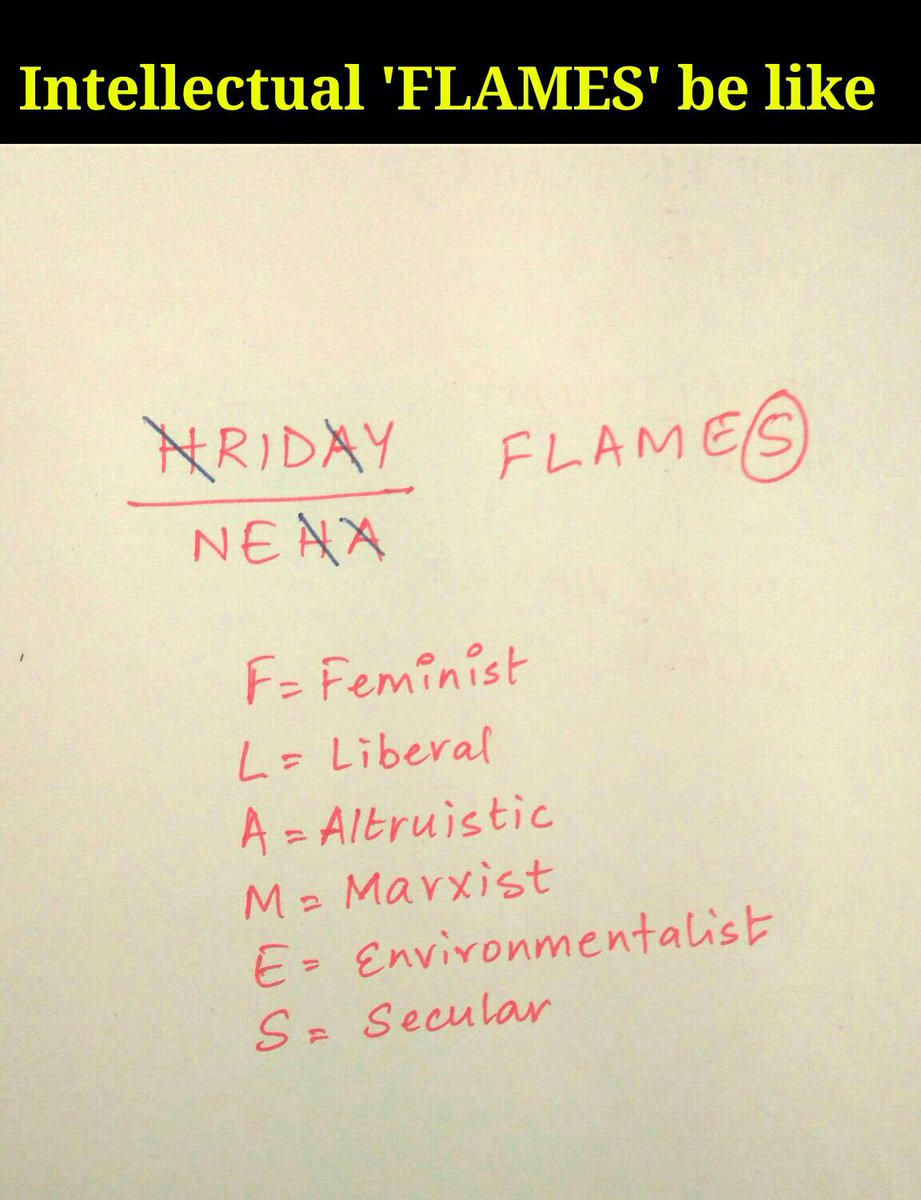 Intellectual 'FLAMES' be like
HRIDAY FLAMES
NEHA
F = Feminist
L = Liberal
A = Altruistic
M = Marxist
E = Environmentalist
S = Secular